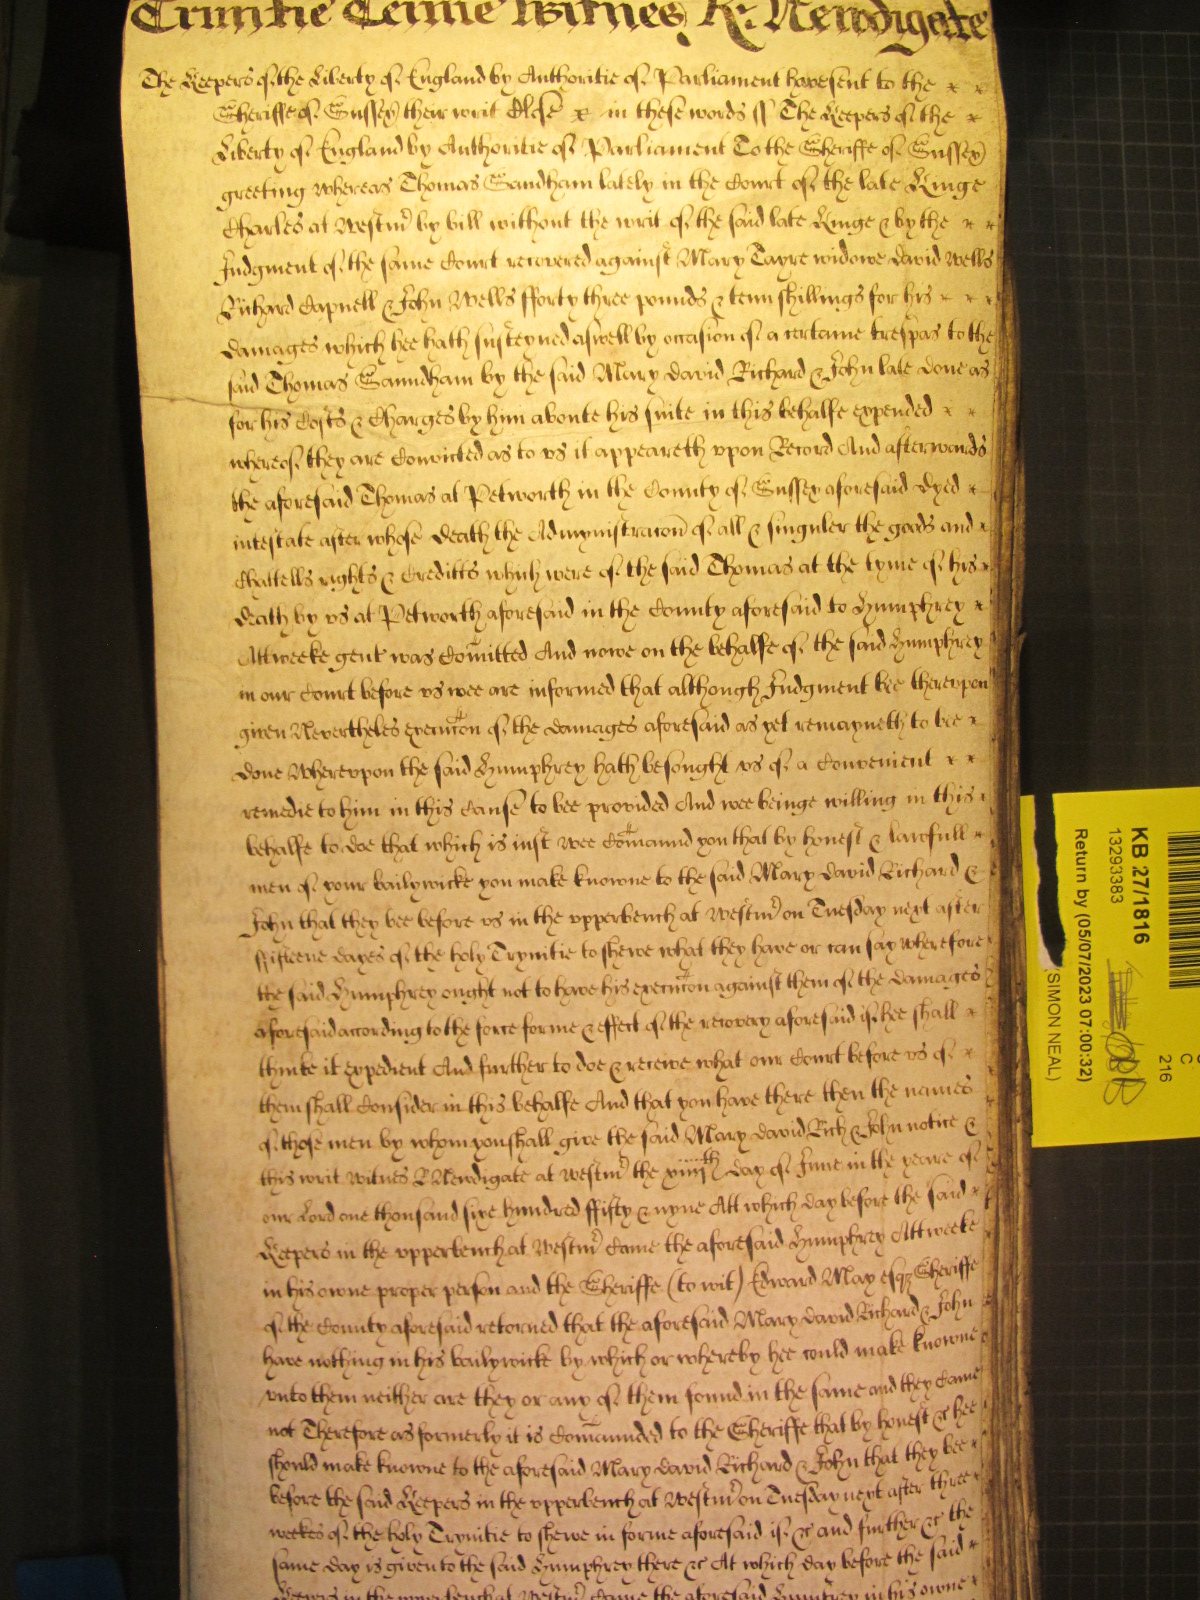 Trinitie Terme Witnes R: Newdigate
The Keepers of the Liberty of England by Authoritie of Parliament have sent to the
Sheriffe of Sussex their writ Close in these words ss The Keepers of the
Liberty of England by Authoritie of Parliament To the Sheriffe of Sussex
greeting whereas Thomas Sandham lately in the Court of the late Kinge
Charles at Westmr by bill without the writ of the said late Kinge & by the
Judgment of the same Court recovered against Mary Tayre widowe David Wells
Richard Capnell & John Wells fforty three pounds & tenn shillings for his
damages which hee hath susteyned aswell by occasion of a certaine trespas to the
said Thomas Saundham by the said Mary David Richard & John late done as
for his Costs & Charges by him aboute his suite in this behalfe expended
whereof they are Convicted as to us it appeareth upon Record And afterwards
the aforesaid Thomas at Petworth in the County of Sussex aforesaid dyed
intestate after whose death the Admynistracon of all & singuler the goods and
Chattells rights & Creditts which were of the said Thomas at the tyme of his
death by us at Petworth aforesaid in the County aforesaid to Humphrey
Attweeke gent was Comitted And nowe on the behalfe of the said Humphrey
in our Court before us wee are informed that although Judgment bee thereupon
given Nevertheles execucon of the damages aforesaid as yet remayneth to bee
done Whereupon the said Humphrey hath besought us of a Convenient
remedie to him in this Cause to bee provided And wee beinge willing in this
behalfe to doe that which is just wee Comaund you that by honest & lawfull
men of your bailywicke you make knowne to the said Mary David Richard &
John that they bee before us in the upperbench at Westmr on Tuesday next after
ffifteene dayes of the holy Trynitie to shewe what they have or can say wherefore
the said Humphrey ought not to have his execucon against them of the damages
aforesaid according to the force forme & effect of the recovery aforesaid if hee shall
thinke it expedient And further to doe & receive what our Court before us of
them shall Consider in this behalfe And that you have there then the names
of those men by whom you shall give the said Mary David Rich & John notice &
this writ witnes R Newdigate at Westmr the xiiijth day of June in the yeare of
our Lord one thousand sixe hundred ffifty & nyne Att which day before the said
Keepers in the upperbench at Westmr Came the aforesaid Humphrey Attweeke
in his owne proper person and the Sheriffe (to wit) Edward May esqr Sheriffe
of the County aforesaid retorned that the aforesaid Mary David Richard & John
have nothing in his bailywicke by which or whereby hee could make knowne
unto them neither are they or any of them found in the same and they Came
not Therefore as formerly it is Comaunded to the Sheriffe that by honest &c hee
should make knowne to the aforesaid Mary David Richard & John that they bee
before the said Keepers in the upperbench at Westmr on Tuesday next after three
weekes of the holy Trynitie to shewe in forme aforesaid if &c and further &c the
same day is given to the said Humphrey there &c At which day before the said
Keepers in the upperbench at Westmr Came the aforesaid Humfrey in his owne
KB 27/1816
13293383
Return by (05/07/2023 07:00:32)
(SIMON NEAL)
C
216